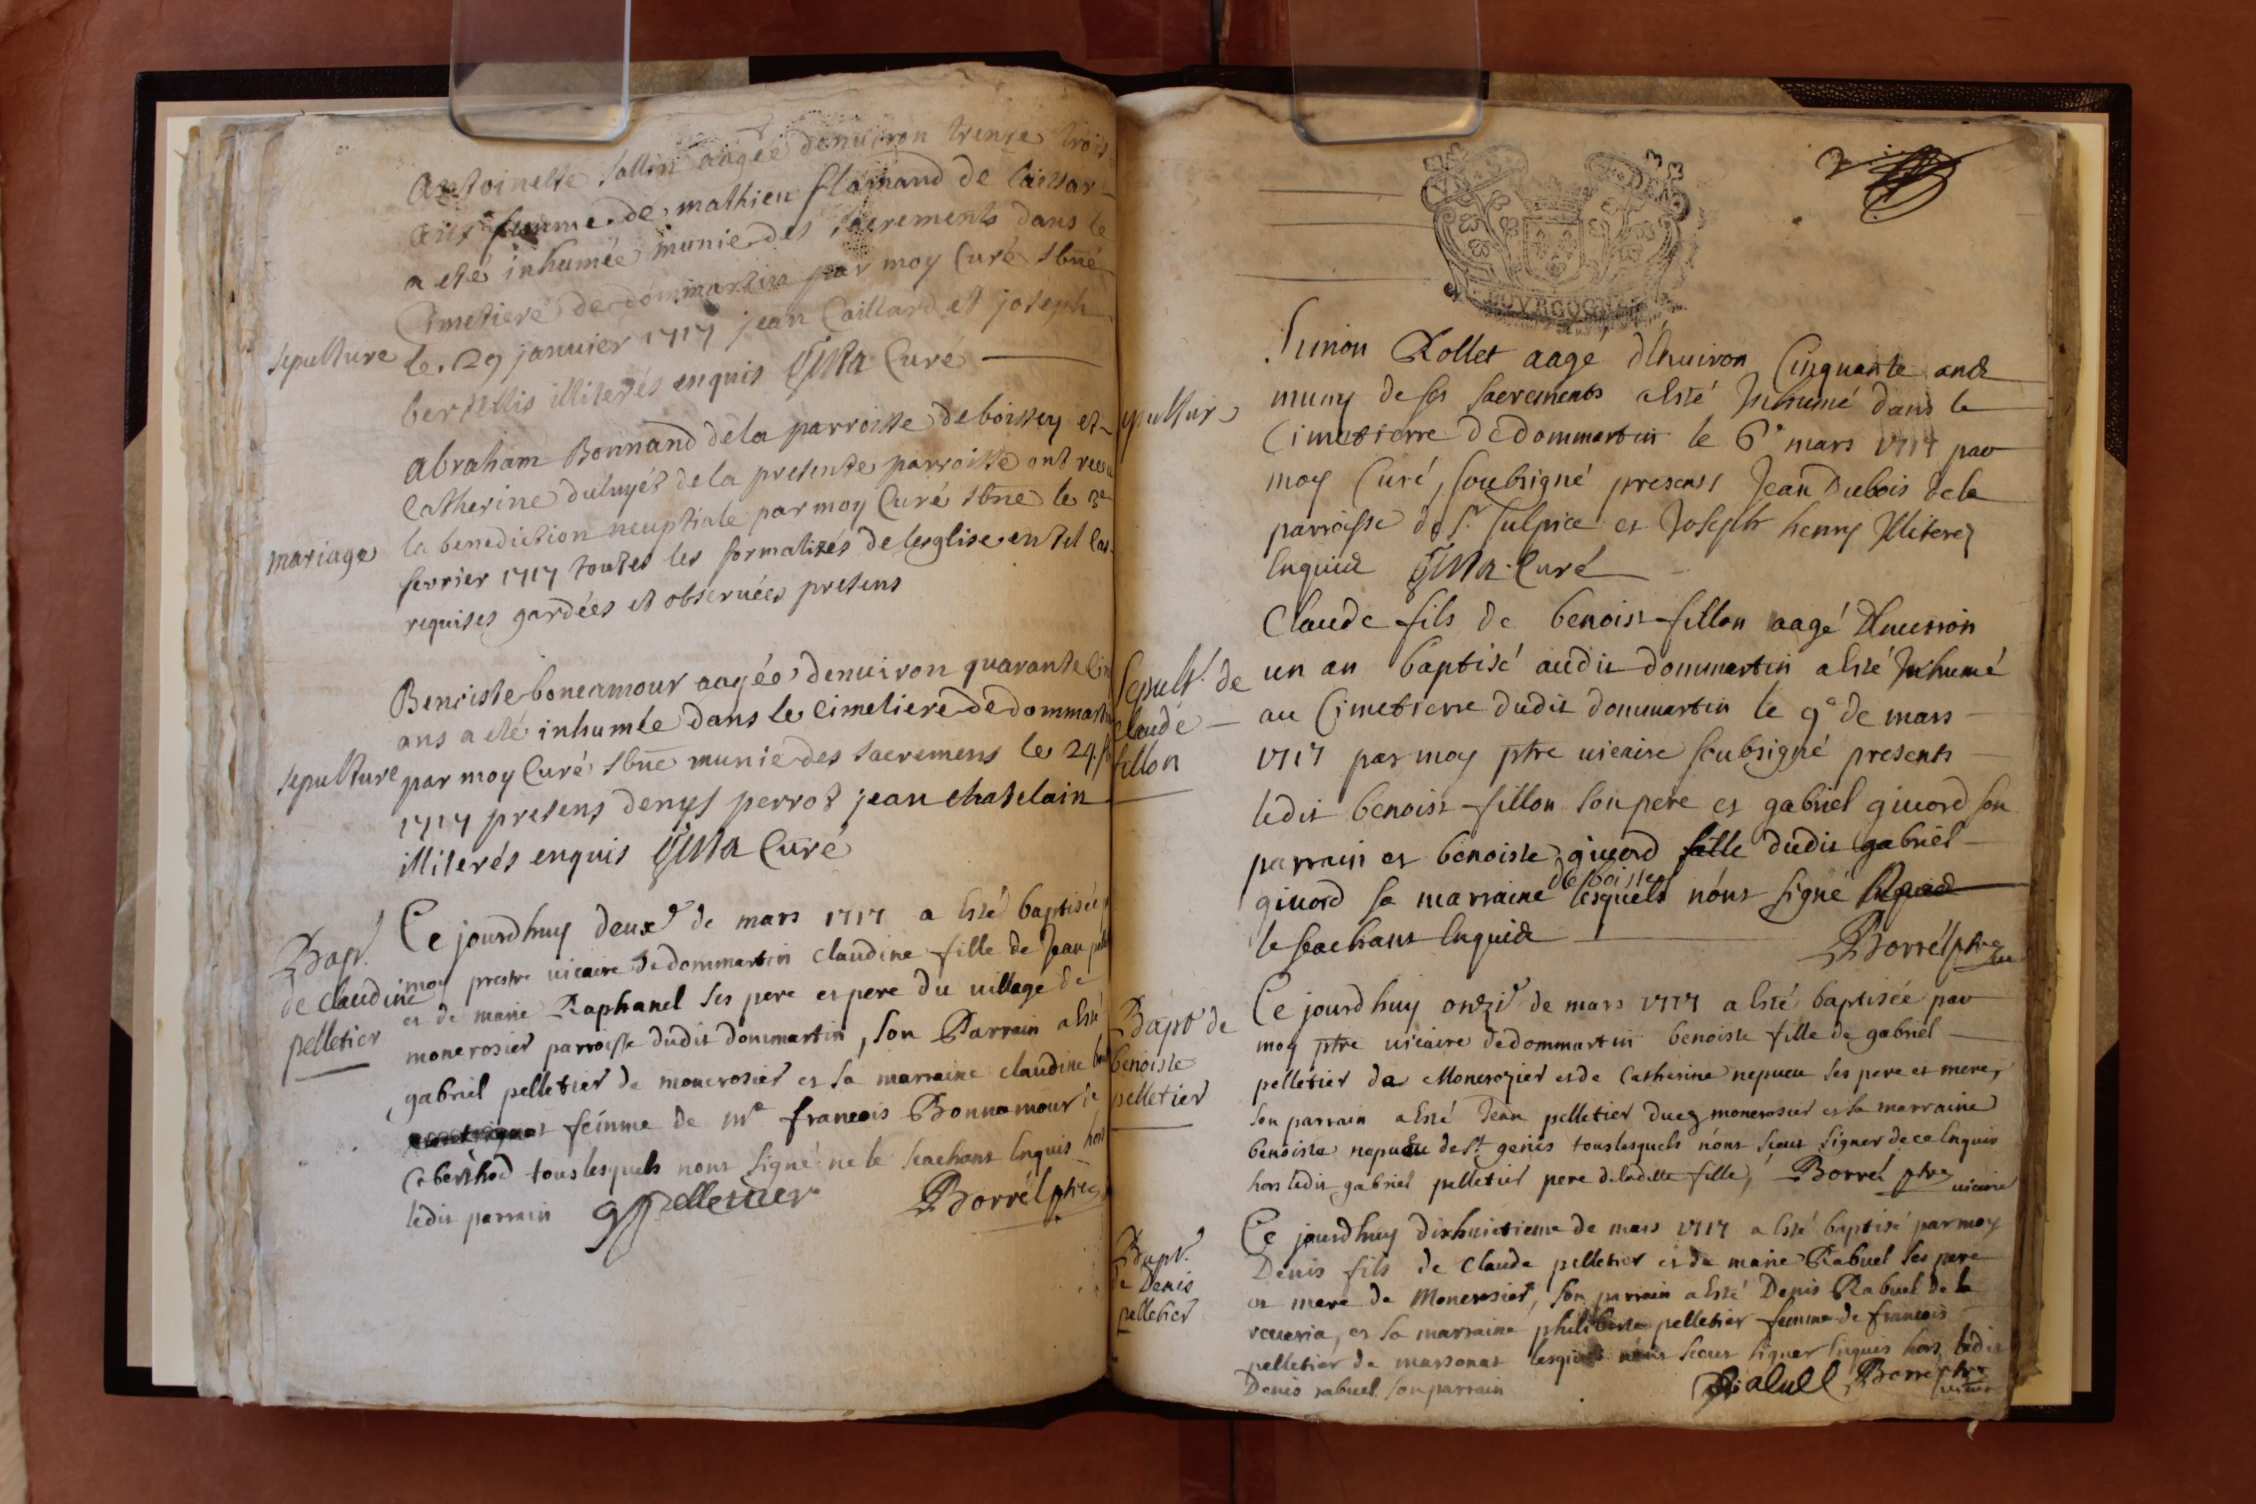 Antoinette Sallin aagée denuiron trente trois
ans femme de mathieu flamand de
a eté inhumée munie des sacrements dans le
Cimetiere de dommartin par moy Curé sbné
sepulture
le 29 janvier 1717 jean Caillard et joseph
illiterés enquis Curé
abraham Bonnand de la parroisse de boissey et
Catherine de la presente parroisse ont receu
la benediction neuptiale par moy Curé sbne le 3e
mariage
fevrier 1717 toutes les formalités de lesglise en tel cas
requises gardées et observées presens
Benoiste boneamour aagée denuiron quarante
ans a eté inhumée dans le Cimetiere de dommartin
sepulture
par moy Curé sbne munie des sacremens le 24
1717 presens denys perrot jean chatelain
illiterés enquis Curé
Bapt.
de claudine
pelletier
Ce jourdhuy deuxe de mars 1717 a esté baptisée
moy prestre vicaire de dommartin claudine fille de Jean
et de marie Raphanel ses pere et pere du village de
monerosier parroisse dudit dommartin, son Parrain a esté
gabriel pelletier de monerosier et sa marraine claudine
femme de me francois Bonnamour
tous lesquels nont signé ne le scachant enquis hors
ledit parrain gpelletier Borrel ptre
BOVRGOGNE
sepulture
Simon Rollet aagé d'enuiron Cinquante ans
muny de ses sacrements a esté Inhumé dans le
Cimetierre de dommartin le 6e mars 1717 par
moy Curé, soubsigné presents Jean Dubois de la
parroisse de St. Sulpice et Joseph henry Illiterez
Enquis Curé
Sepult. de
claude
fillon
Claude fils de benoist fillon aagé d'enuiron
un an baptisé audit dommartin a esté Inhumé
au Cimetierre dudit dommartin le 9e de mars
1717 par moy ptre vicaire soubsigné presents
ledit benoist fillon son pere et gabriel giuord son
parrain et benoiste giuord fille dudit gabriel
de boissey
giuord sa marraine lesquels n'ont signé enquis
le scachant Enquis
Borrel ptre
Bapt. de
benoiste
pelletier
Ce jourdhuy onzie de mars 1717 a esté baptisée par
moy ptre vicaire de dommartin benoiste fille de gabriel
pelletier de Monerozier et de Catherine nepueu ses pere et mere,
son parrain a esté Jean pelletier monerosier et sa marraine
benoiste nepueu de St genis tous lesquels n'ont sceut signer de ce Enquis
hors ledit gabriel pelletier pere de laditte fille, Borrel ptre vicaire
Bapt.
de Denis
pelletier
Ce jourdhuy dixhuictieme de mars 1717 a esté baptisé par moy
Denis fils de Claude pelletier et de marie Rabuel ses pere
et mere de Monerosier, son parrain a esté Denis Rabuel de la
et sa marraine philiberte pelletier femme de francois
pelletier de marsonas lesquels n'ont sceut signer Enquis hors ledit
Denis rabuel son parrain Borrel ptre